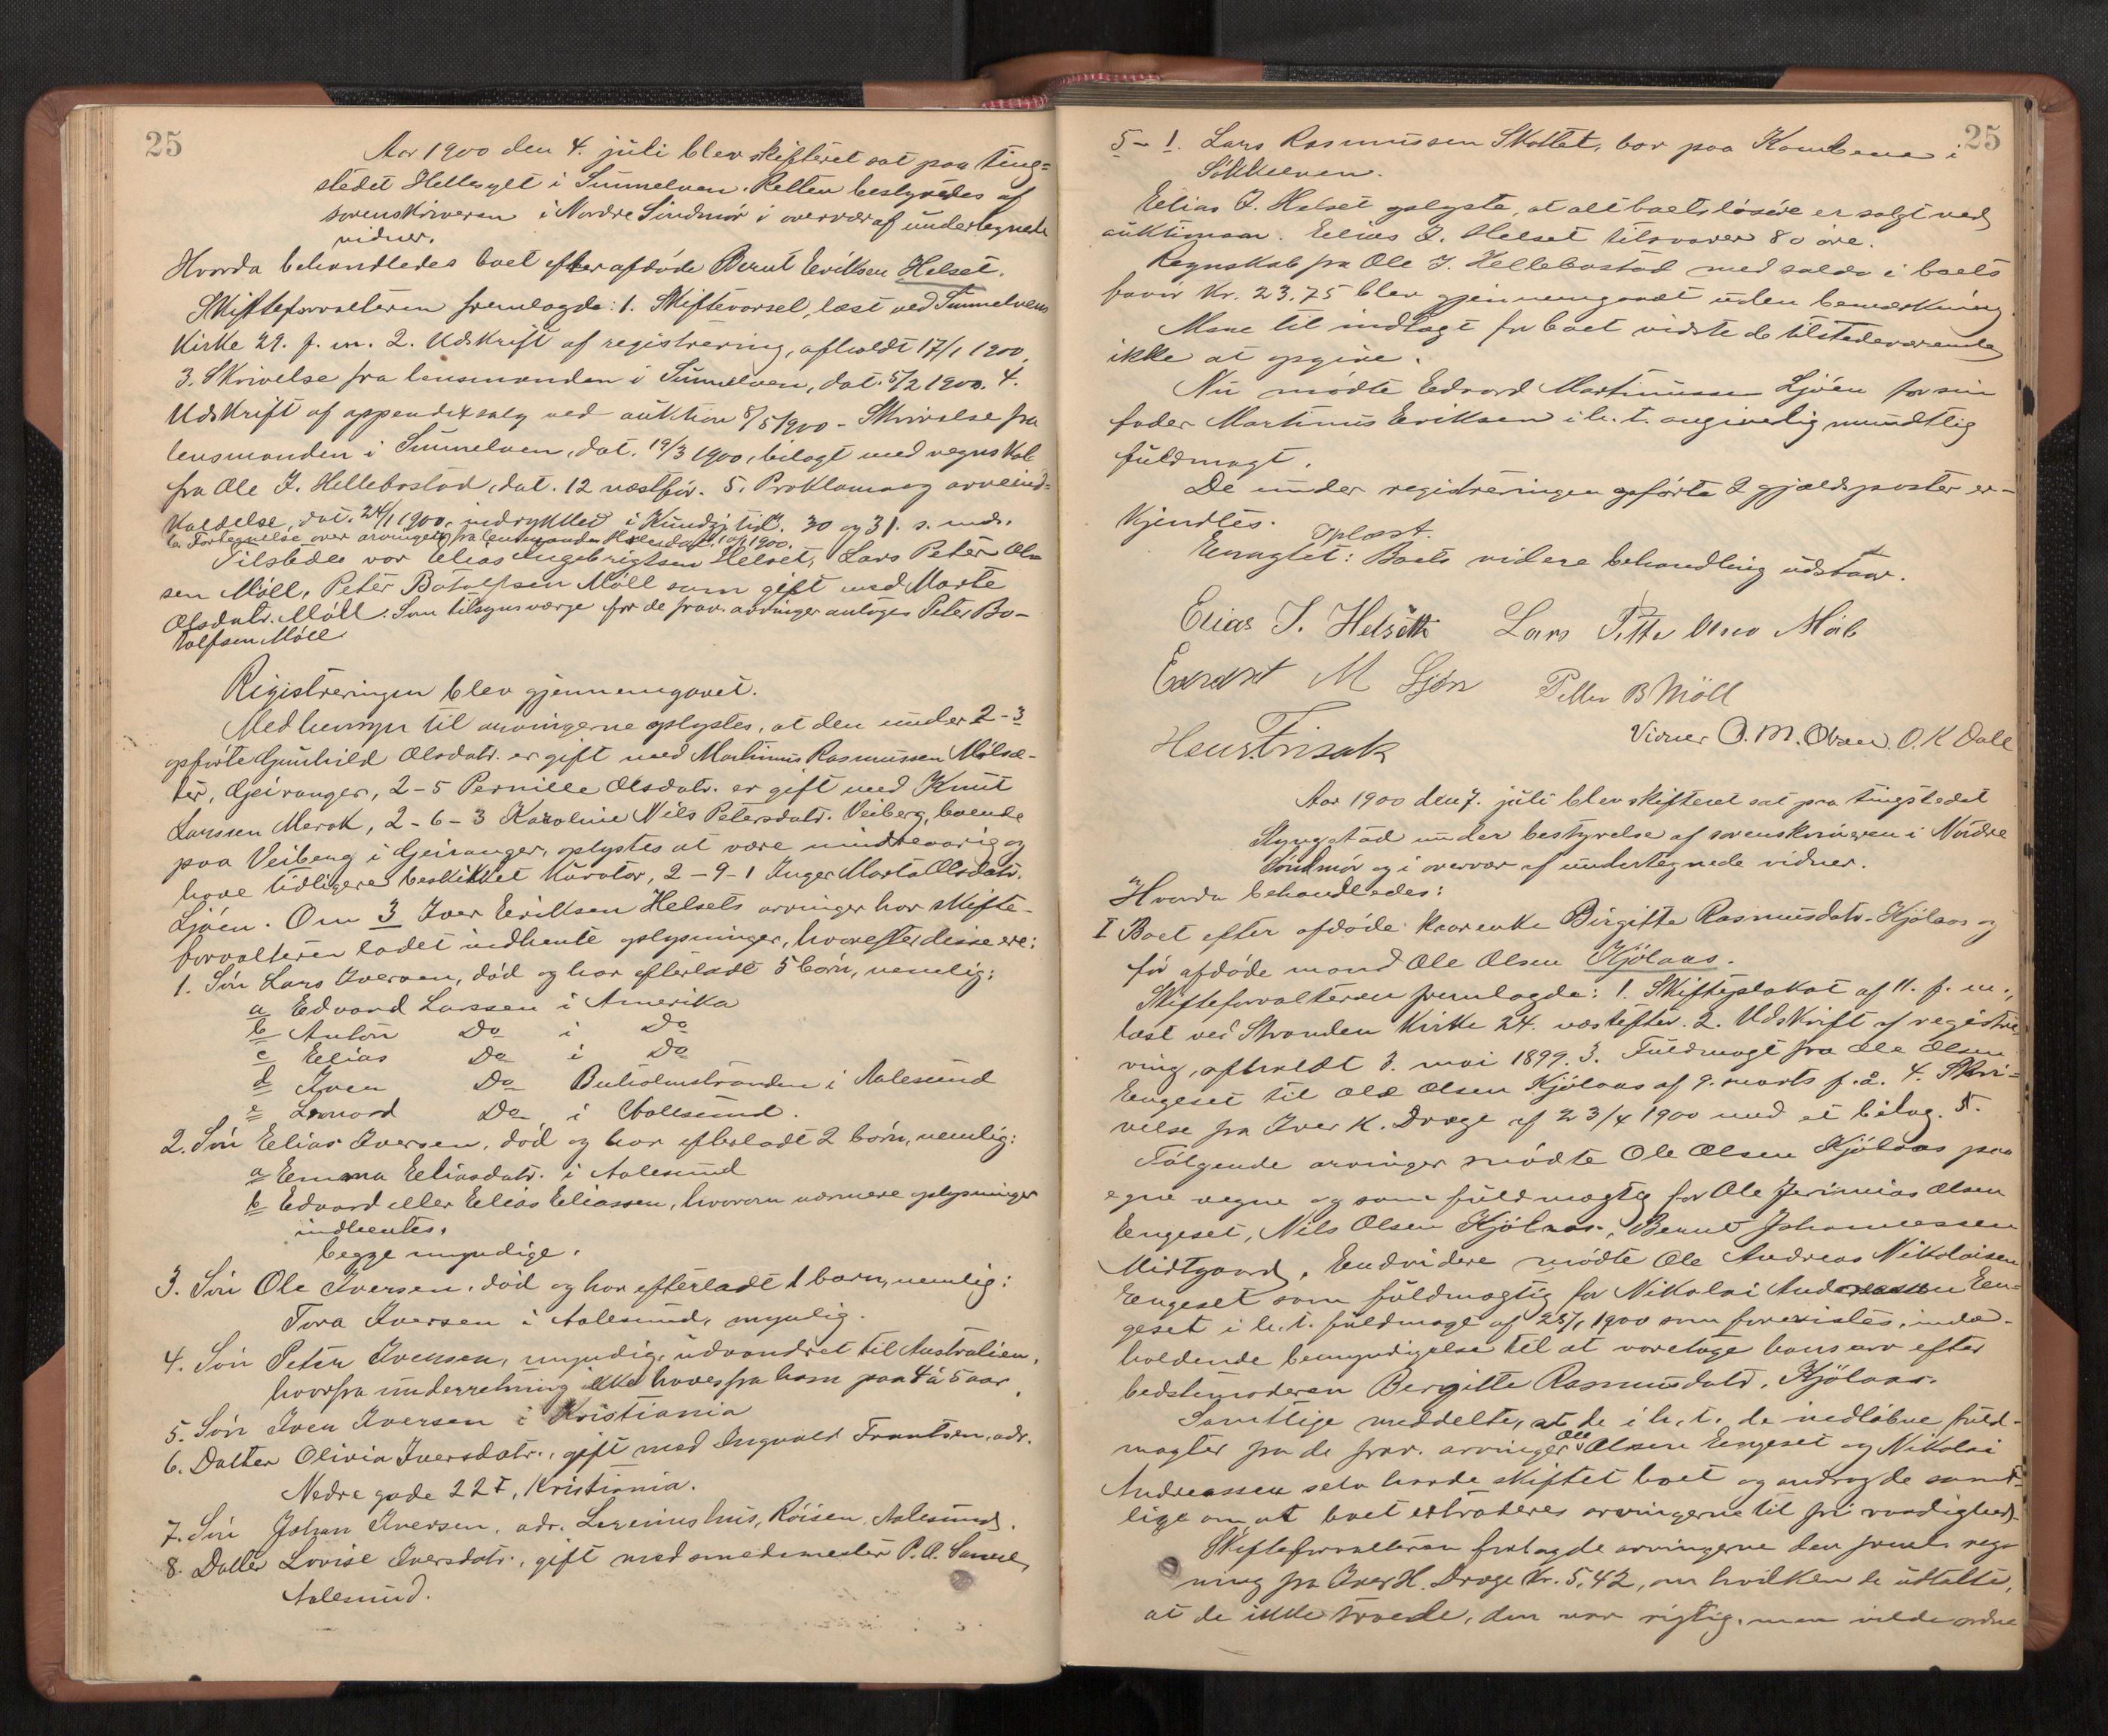 25
Aar 1900 den 4. juli blev skifteret sat paa ting=
stedet Hellesylt i Sunnelven. Retten bestyredes af
sorenskriveren i Nordre Søndmør i overvær af undertegnede
vidner.
Hvorda behandledes boet efter afdøde Bernt Eriksen Helset.
Skifteforvalteren fremlagde: 1. Skiftevarsel, læst ved Sunnelvens
Kirke 29. f. m. 2. Udskrift af registrering, afholdt 17/1 1900,
3. Skrivelse fra lensmanden i Sunnelven, dat. 5/2 1900. 4.
Udskrift af appendixsalg ved auktion 8/5 1900 - Skrivelse fra
lensmanden i Sunnelven, dat. 19/3 1900, bilagt med regnskab
fra Ole J. Hellebostad, dat. 12 næstfør. 5. Proklama og arveind=
kaldelse, dat. 24/1 1900, indrykket i Kundgj. tid. 30 og 31. s. mdr.
6. Fortegnelse over arvingerne fra lensmanden 1900.
Tilstede var Elias Ingebrigtsen Helset, Lars Peter Ol=
sen Møll, Peter Botolfsen Møll som gift med Marte
Olsdatr. Møll. Som tilsynsværge for de frav. arvinger antoges Peter Bo-
tolfsen Møll.
Registreringen blev gjennemgaaet.
Med hensyn til arvingerne oplystes, at den under 2-3
opførte Gunhild Olsdatr. er gift med Martinus Rasmussen Mølsæ-
ter, Geiranger, 2-5 Pernille Olsdatr. er gift med Knut
Larssen Merok, 2-6-3 Karoline Nils Petersdatr. Veiberg, boende
paa Veiberg i Geiranger, oplystes at være mindreaarig og
have tidligere beskikket Kurator, 2-9-1 Inger Marta Olsdatr.
Ljøen. Om 3 Iver Eriksen Helsets arvinger har skifte-
forvalteren ladet indhente oplysninger, hvorefter disse ere:
1. Søn Lars Iversen, død og har efterladt 5 børn, nemlig:
a Edvard Larssen i Amerika
b Anton Do i Do
c Elias Do i Do
d Iver Do Buholmstranden i Aalesund
e Leonard Do i Aalesund.
2. Søn Elias Iversen, død og har efterladt 2 børn, nemlig:
a Emma Eliasdatr. i Aalesund
b Edvard eller Elias Eliassen, hvorom nærmere oplysninger
indhentes.
begge myndige.
3. Søn Ole Iversen, død og har efterladt 1 barn, nemlig:
Tora Iversen i Aalesund, myndig.
4. Søn Peter Iversen, myndig, udvandret til Australien,
hvorfra underretning ikke haves fra ham paa 4 à 5 aar.
5. Søn Iver Iversen i Kristiania
6. Datter Olivia Iversdatr., gift med Ingvald Frantsen, adr.
Nedre gade 22 I, Kristiania.
7. Søn Johan Iversen, adr. hus, Røisen, Aalesund.
8. Datter Lovise Iversdatr., gift med smedmester P. A.
Aalesund.
25
5-1. Lars Rasmussen Skottet, bor paa i
Søkkelven.
Elias I. Helset oplyste, at alt boets løsøre er solgt ved
auktionen. Elias I. Helset tilsvarer 80 øre.
Regnskab fra Ole J. Hellebostad med saldo i boets
favør Kr. 23.75 blev gjennemgaaet uden bemærkning.
Mere til indtægt for boet vidste de tilstedeværende
ikke at opgive.
Nu mødte Edvard Martinussen Ljøen for sin
fader Martinus Eriksen i h. t. angivelig mundtlig
fuldmagt.
De under registreringen opførte 2 gjældsposter er-
kjendtes.
Oplæst.
Eragtet: Boets videre behandling udstaar.
Elias I. Helseth Lars Petter Olsen Møll
Edvard M Ljøen Petter B Møll
Hans Frisak Vidner O. M. Olsen. O. K Dale
Aar 1900 den 7. juli blev skifteret sat paa tingstedet
Slyngstad under bestyrelse af sorenskriveren i Nordre
Søndmør og i overvær af undertegnede vidner.
Hvorda behandledes:
I Boet efter afdøde kaarenke Birgitte Rasmusdatr. Kjølaas og
før afdøde mand Ole Olsen Kjølaas.
Skifteforvalteren fremlagde: 1. Skifteplakat af 11. f. m.,
læst ved Stranden Kirke 24. næstefter. 2. Udskrift af registre
ring, afholdt 3. mai 1899. 3. Fuldmagt fra Ole Olsen
Engeset til Ole Olsen Kjølaas af 9. marts f. å. 4. Skri=
velse fra Iver K. Drage af 23/4 1900 med et bilag. 5.
Følgende arvinger mødte Ole Olsen Kjølaas paa
egne vegne og som fuldmægtig for Ole Jerimias Olsen
Engeset, Nils Olsen Kjølaas, Bernt Johannessen
Midtgaard. Endvidere mødte Ole Andreas Nikolaisen
Engeset som fuldmægtig for Nikolai Andreassen En=
geset i h. t. fuldmagt af 25/1 1900 som forevistes, inde-
holdende bemyndigelse til at varetage hans arv efter
bedstemoderen Bergitte Rasmusdatr. Kjølaas.
Samtlige meddelte, at de i h. t. de indløbne fuld-
magter fra de frav. arvinger Ole Olsen Engeset og Nikolai
Andreassen selv havde skiftet boet og androg de samt-
lige om at boet extraderes arvingerne til fri raadighed.
Skifteforvalteren forelagde arvingerne den freml. reg-
ning fra Iver K. Drage Kr. 5,42, om hvilken de udtalte,
at de ikke troede, den var rigtig, men vilde ordne